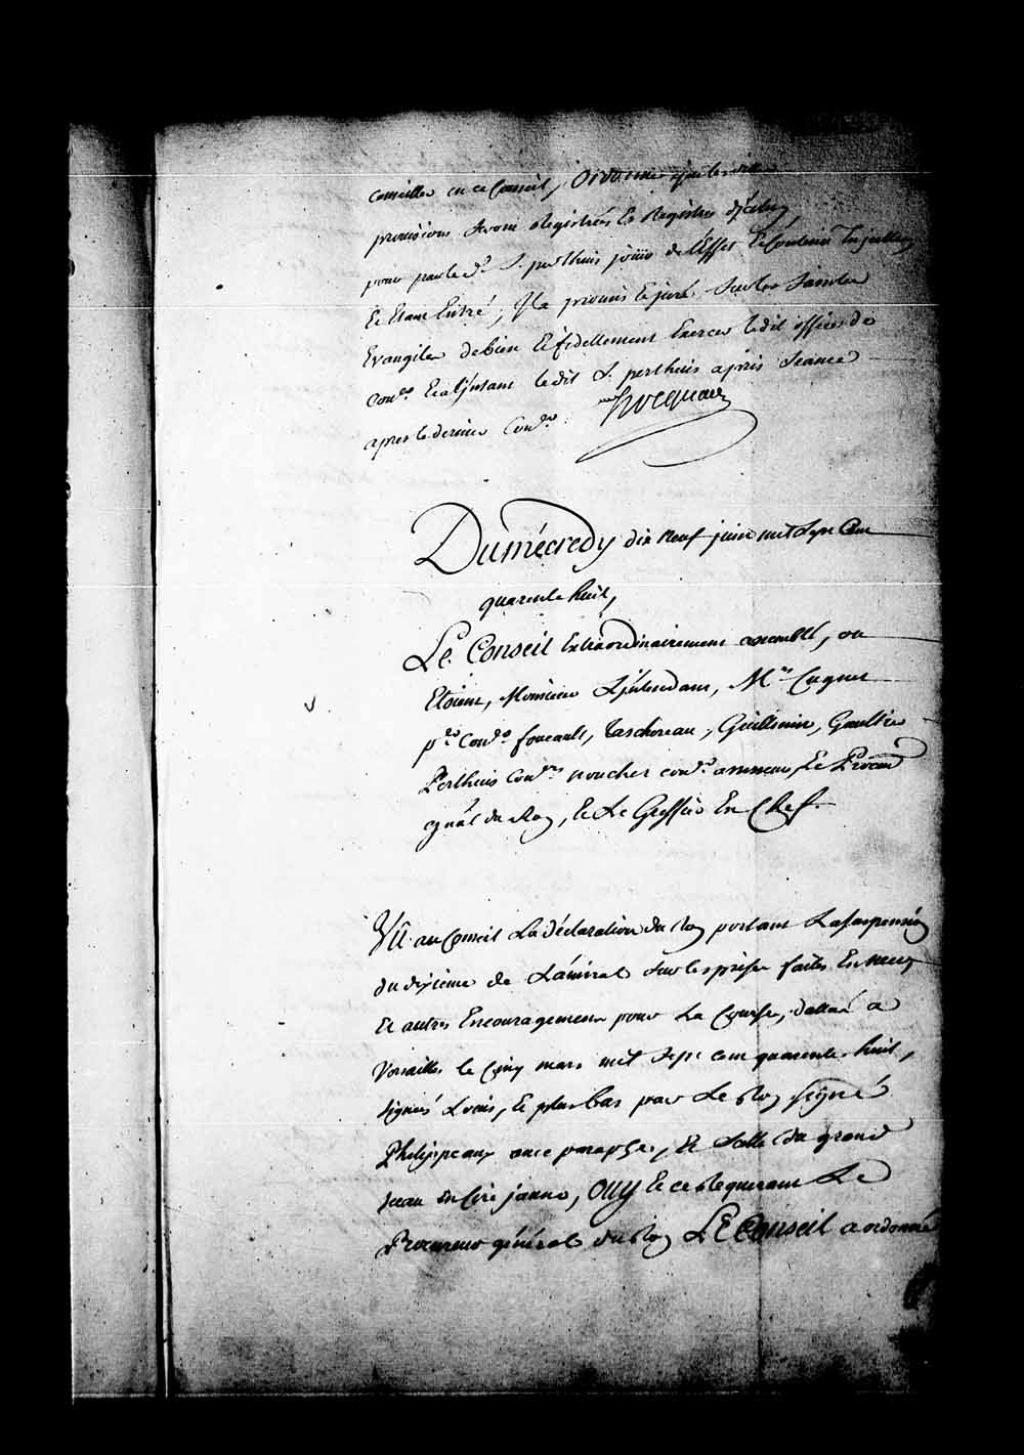 conseiller en ce Conseil, Ordonne que lesdites
provisions seront Registrées Es Registres d'jceluy,
pour par led. S. perthuis jouir de l'Effet & Contenu En jcelles
Et Etant Entré, Il a promis & juré sur les Saintes
Evangiles de bien & fidellement Exercer ledit office de
Con.er Et a l'jnstant ledit S. perthuis a pris Seance
apres le dernier Con.er Hocquart
Du mécredy dix neuf juin mil Sept Cent
quarente huit,
Le Conseil Extraordinairement assemblé, ou
Etoient, Monsieur L'jntendant, M.rs Cugnet
p.er Con.er foucault, Taschereau, Guillimin, Gaultier
Perthuis Con.ers noucher con.er assesseur, Le Procur.r
gnâl du Roy, & Le Greffier En Chef.
Vû au Conseil La déclaration du Roy portant La suspension
du dixiéme de L'amiral sur les prises faites En mer,
Et autres Encouragemens pour La Course, donnée a
Versailles le Cinq mars mil Sept cent quarente huit,
Signés Louis, & plus bas par Le Roy Signé
Philypeaux avec paraphe, Et Scellé du grand
sceau En Cire jaune, OUY & ce Requerant Le
Procureur général du Roy LE Conseil a ordonné